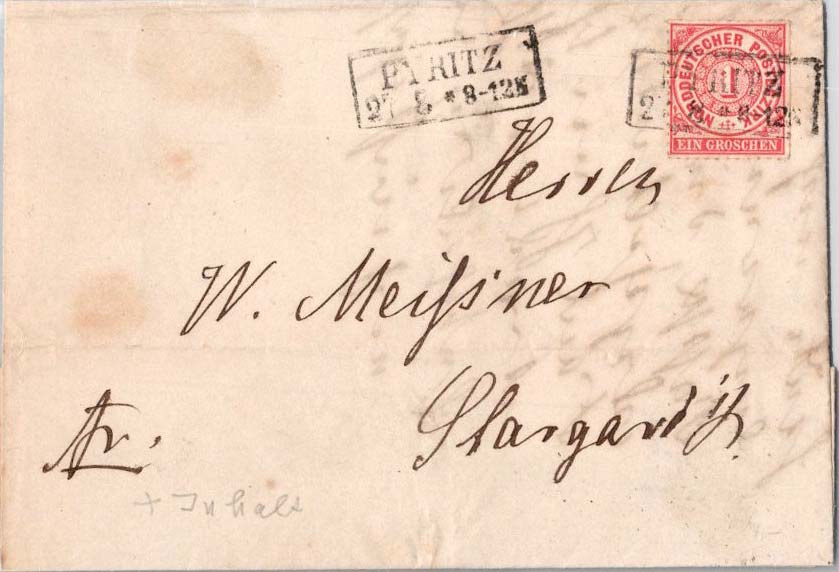 PYRITZ
27 8 * 8-12N
NORDDEUTSCHER POSTBEZIRK
1
EIN GROSCHEN
Herren
W. Meißner
Stargard i/P.
fr.
+ Inhalt